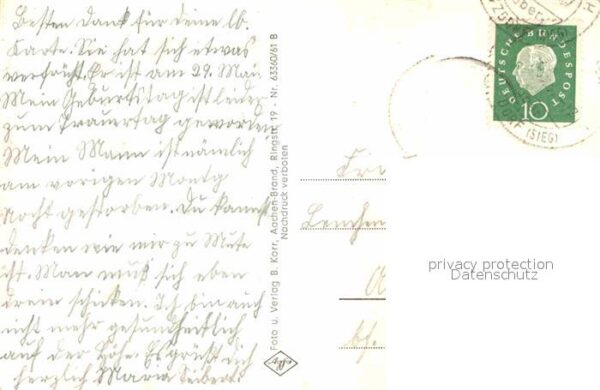 Besten Dank für deine lb.
Karte. Sie hat sich etwas
verfrüht. Er ist am 29. Mai
Mein Geburtstag ist leider
zum Trauertag geworden
Mein Mann ist nämlich
am vorigen
Nacht gestorben. Du kannst
denken wie mir zu Mute
ist. Man muß sich eben
drein schicken. Ich bin auch
nicht mehr gesundheitlich
auf der Höhe. Es grüßt dich
herzlich Maria
Foto u. Verlag B. Korr, Aachen-Brand, Ringstr. 19 - Nr. 63360/61 B
Nachdruck verboten
DEUTSCHE BUNDESPOST
10
(SIEG)
privacy protection
Datenschutz